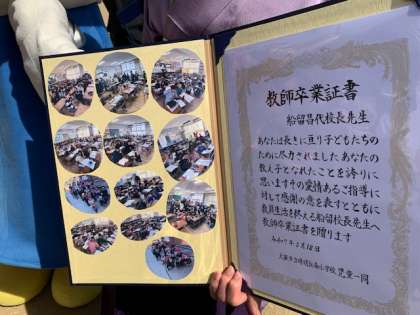 教師卒業証書
船留昌代校長先生
あなたは長きに亘り子どもたちの
ために尽力されました あなたの
教え子となれたことを誇りに
思います その愛情あるご指導に
対して感謝の意を表すとともに
教員生活を終える船留校長先生へ
教師卒業証書を贈ります
令和7年3月18日
小学校 児童一同